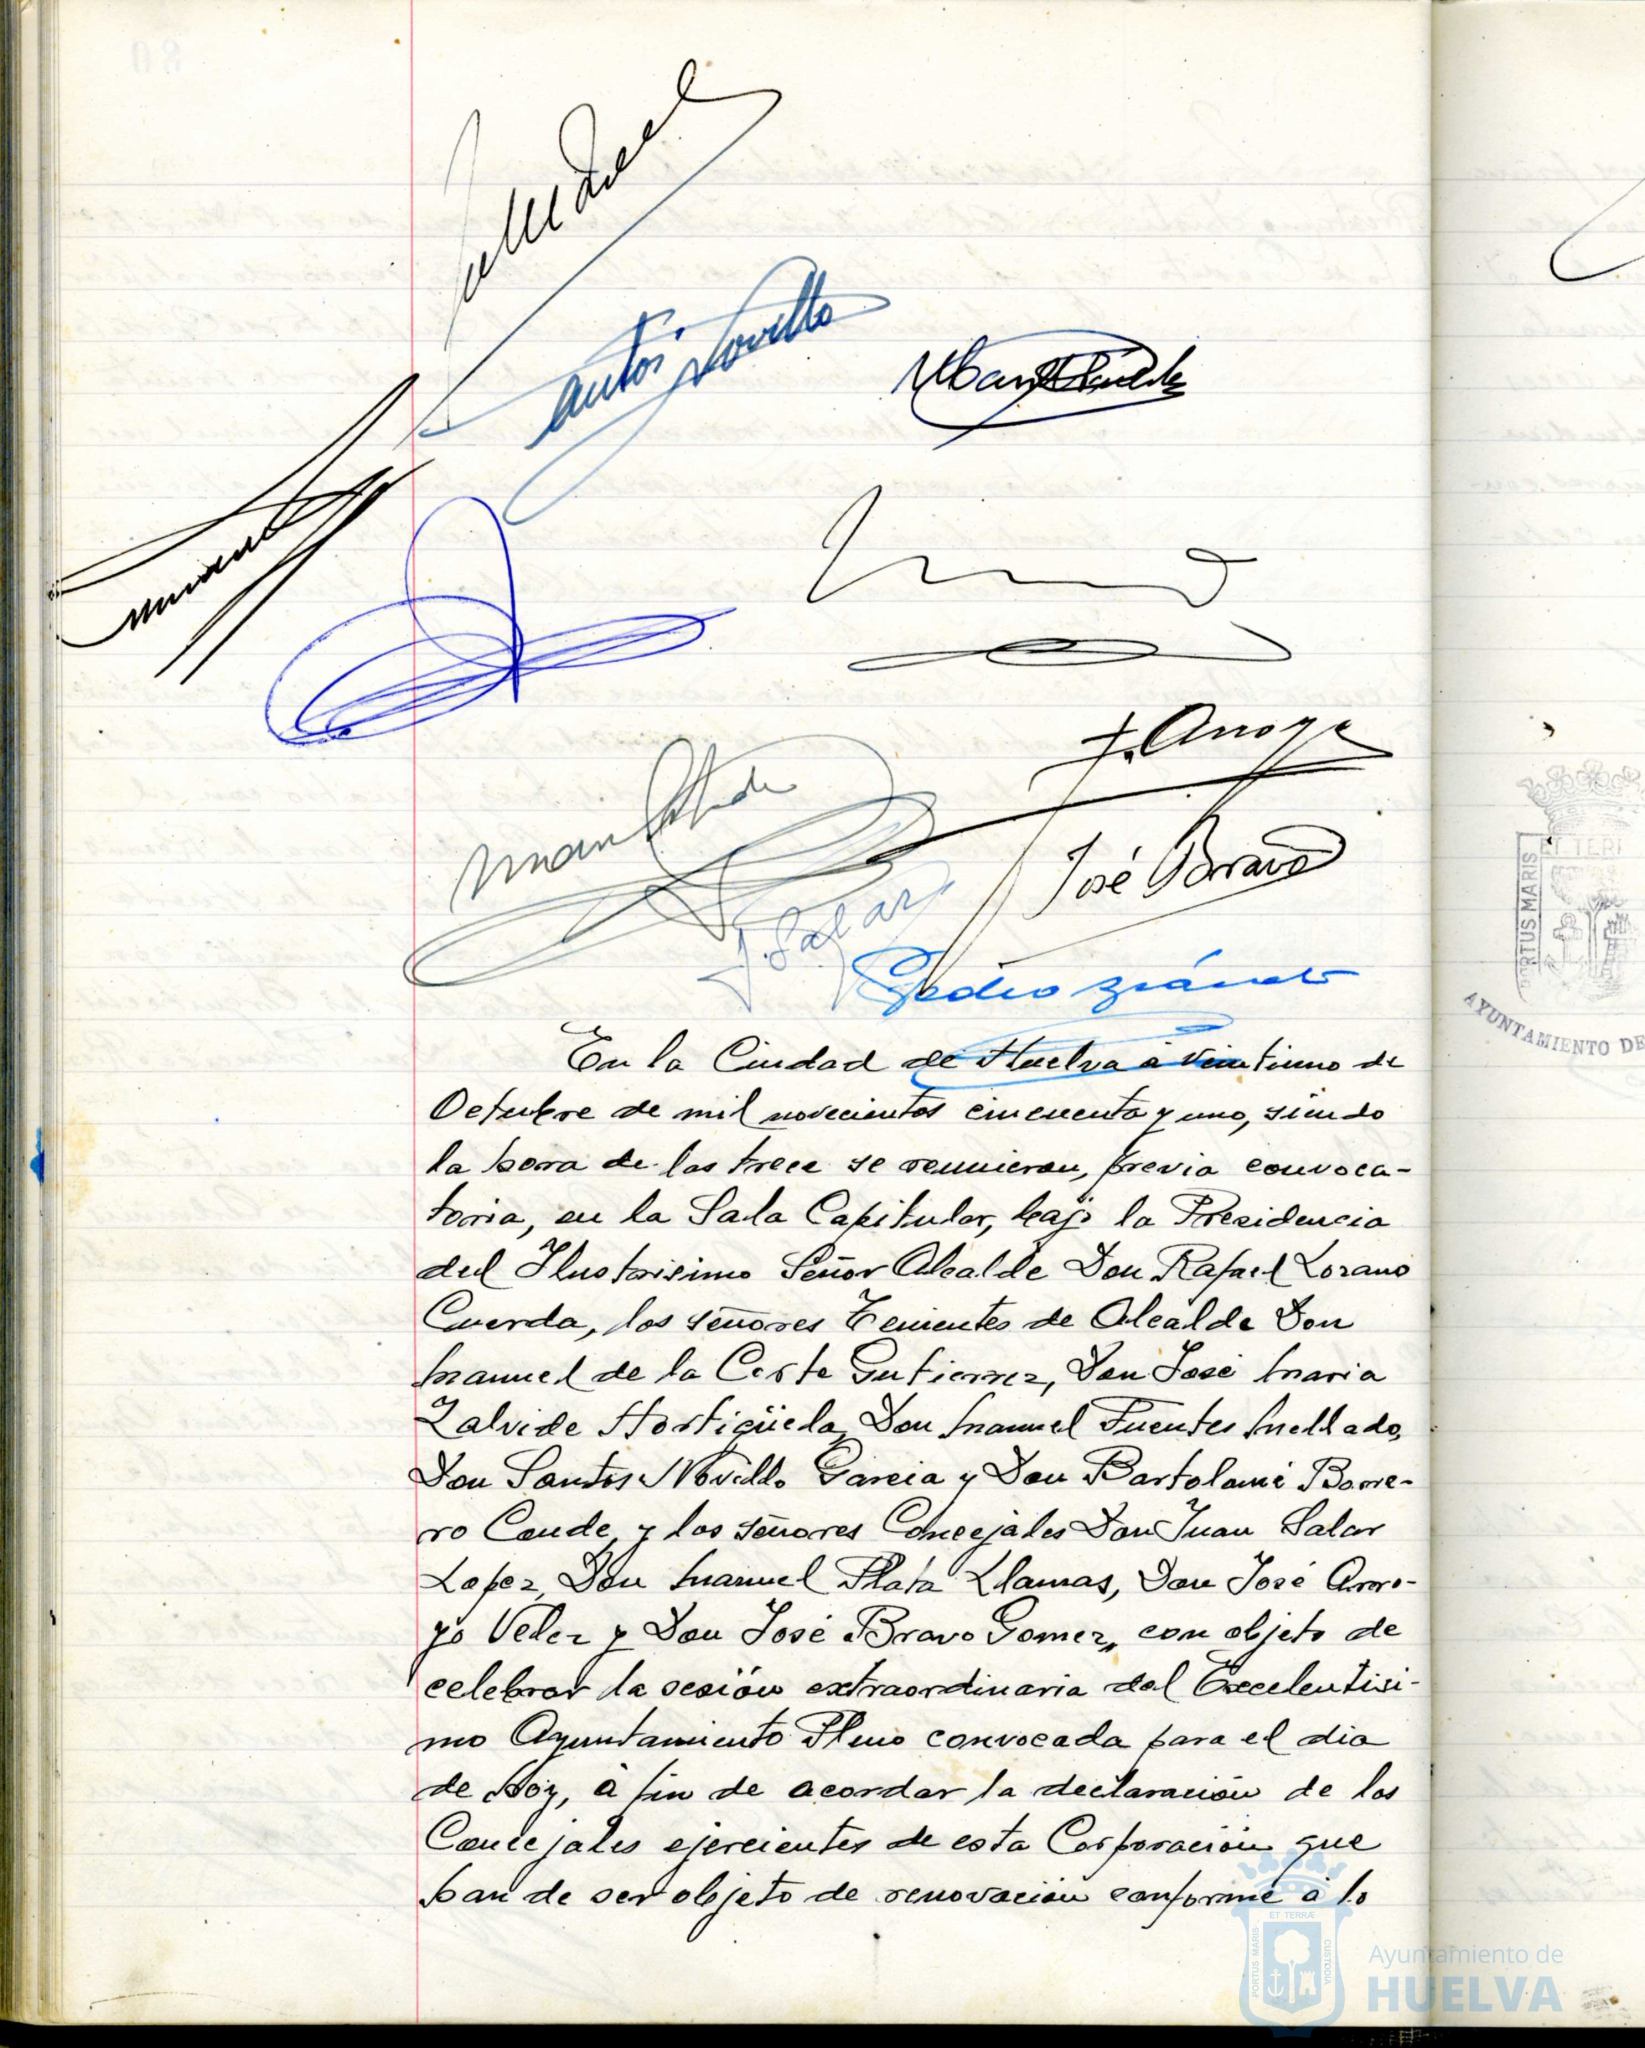 Santos Novillo
J. Arroyo
José Bravo
J. Salar
Pedro
En la Ciudad de Huelva a veintiuno de
Octubre de mil novecientos cincuenta y uno, siendo
la hora de las trece se reunieron, previa convoca-
toria, en la Sala Capitular, bajo la Presidencia
del Ilustrisimo Señor Alcalde Don Rafael Lozano
Cuerda, los señores Tenientes de Alcalde Don
Manuel de la Corte Gutierrez, Don José Maria
Zalvide Hortigüela, Don Manuel Fuentes Mellado,
Don Santos Novillo Garcia y Don Bartolomé Borre-
ro Conde, y los señores Concejales Don Juan Salar
Lopez, Don Manuel Plata Llamas, Don José Arro-
yo Velez y Don José Bravo Gomez, con objeto de
celebrar la sesión extraordinaria del Excelentisi-
mo Ayuntamiento Pleno convocada para el dia
de hoy, a fin de acordar la declaración de los
Concejales ejercientes de esta Corporación que
han de ser objeto de renovación conforme a lo
PORTUS MARIS
ET TERRÆ
CUSTODIA
Ayuntamiento de
HUELVA
RTUS MARIS
ET TERR
AYUNTAMIENTO DE